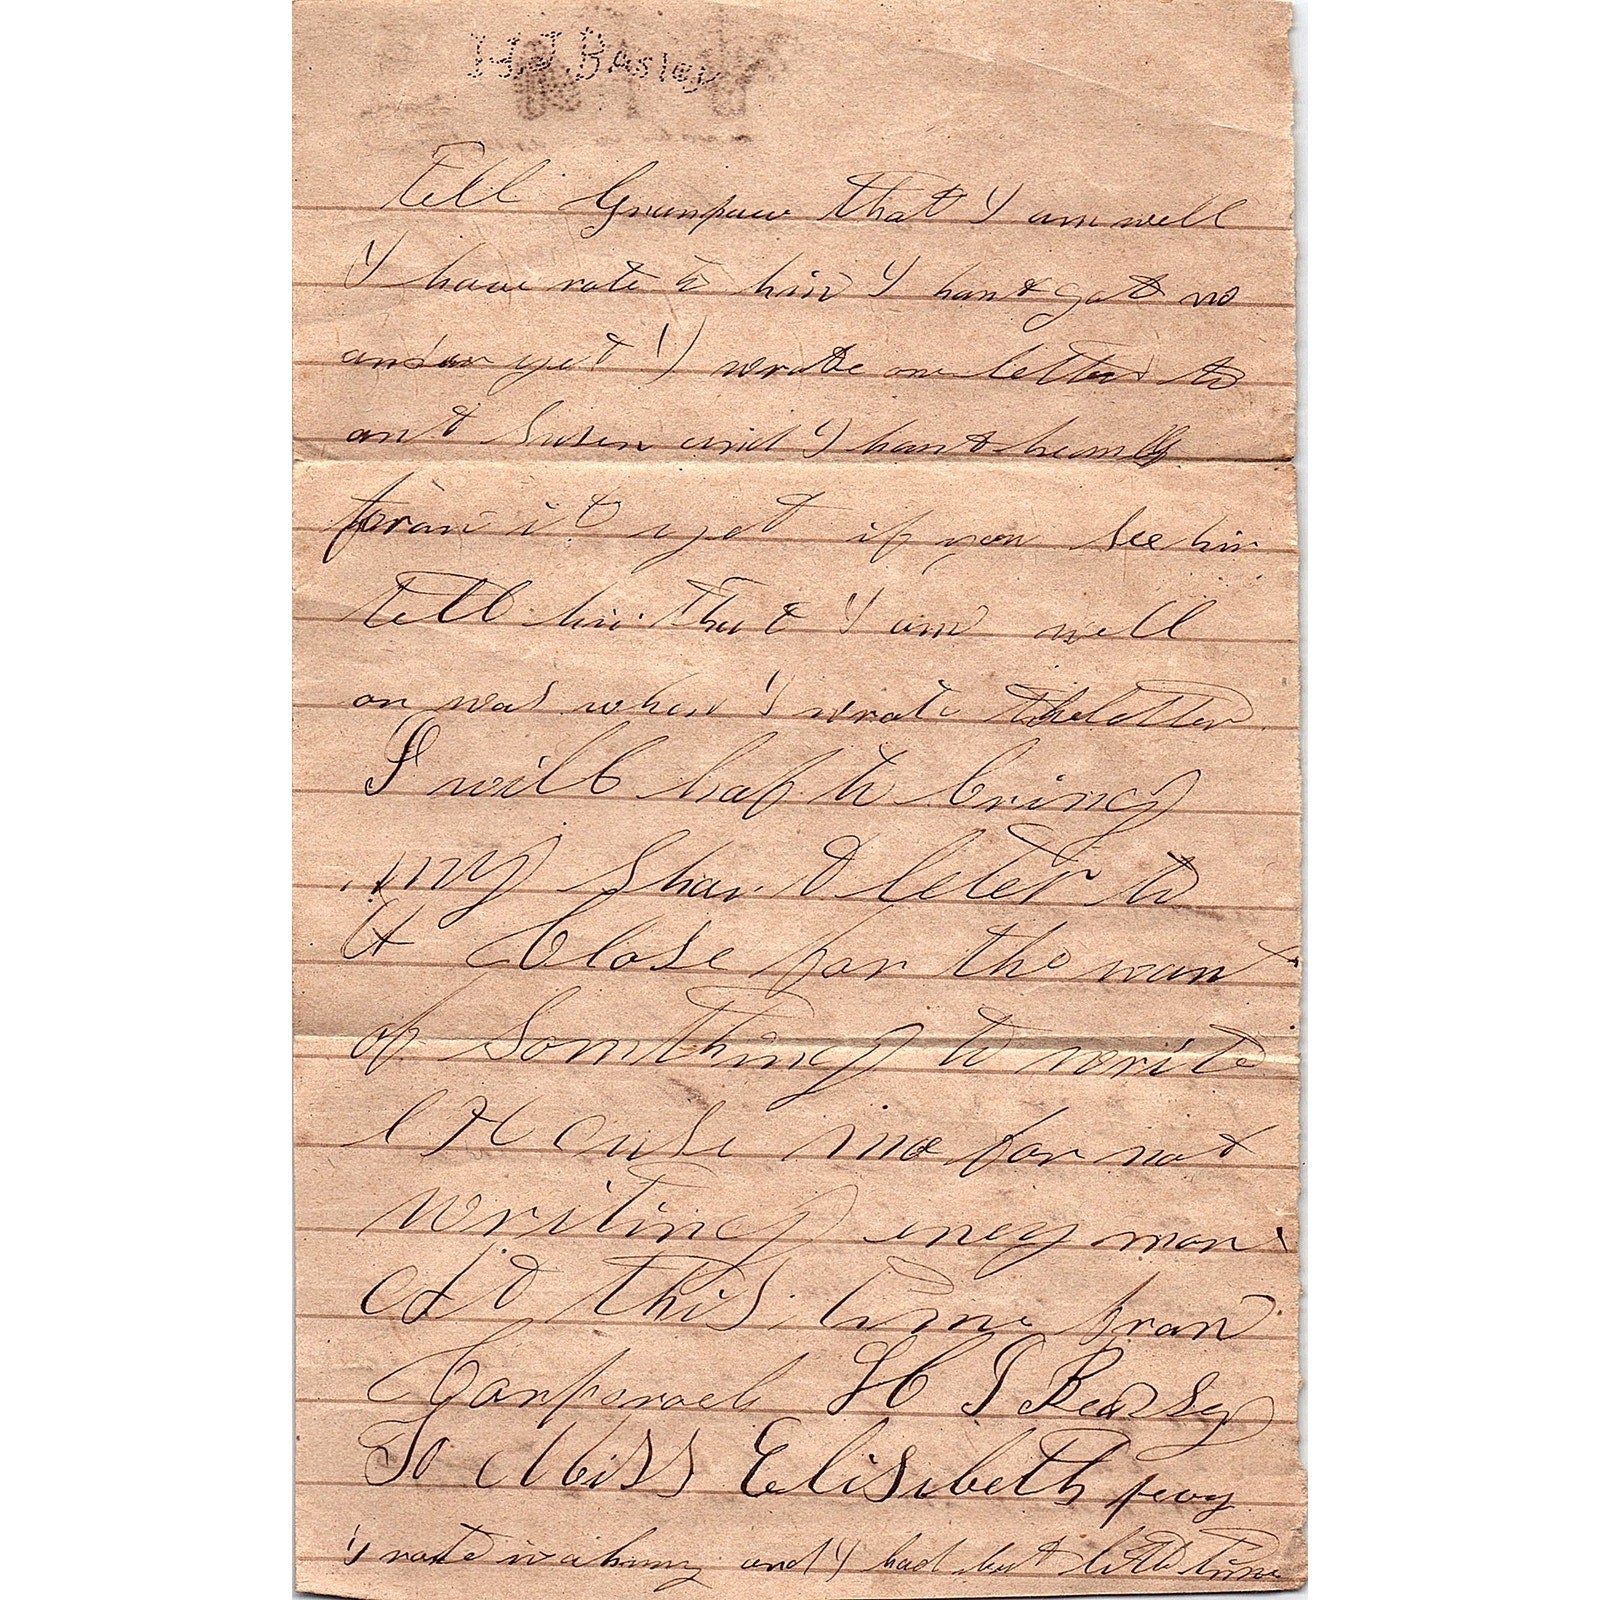 H.J. BAsley
Tell Granpaw that I am well
I have rote to him I hant got no
ansar yet I wrote one letter to
ant Susen and I hant heard
fram it yet if you see him
tell him that I am well
or was when I wrote the letter
I will haf to bring
my Short leter to
A Close for the want
of Somthing to write
excuse me for not
writing eney more
At this time fram
Corporael H J Beasley
To Miss Elisibeth pevy
I rote in a hurry and I had but little time